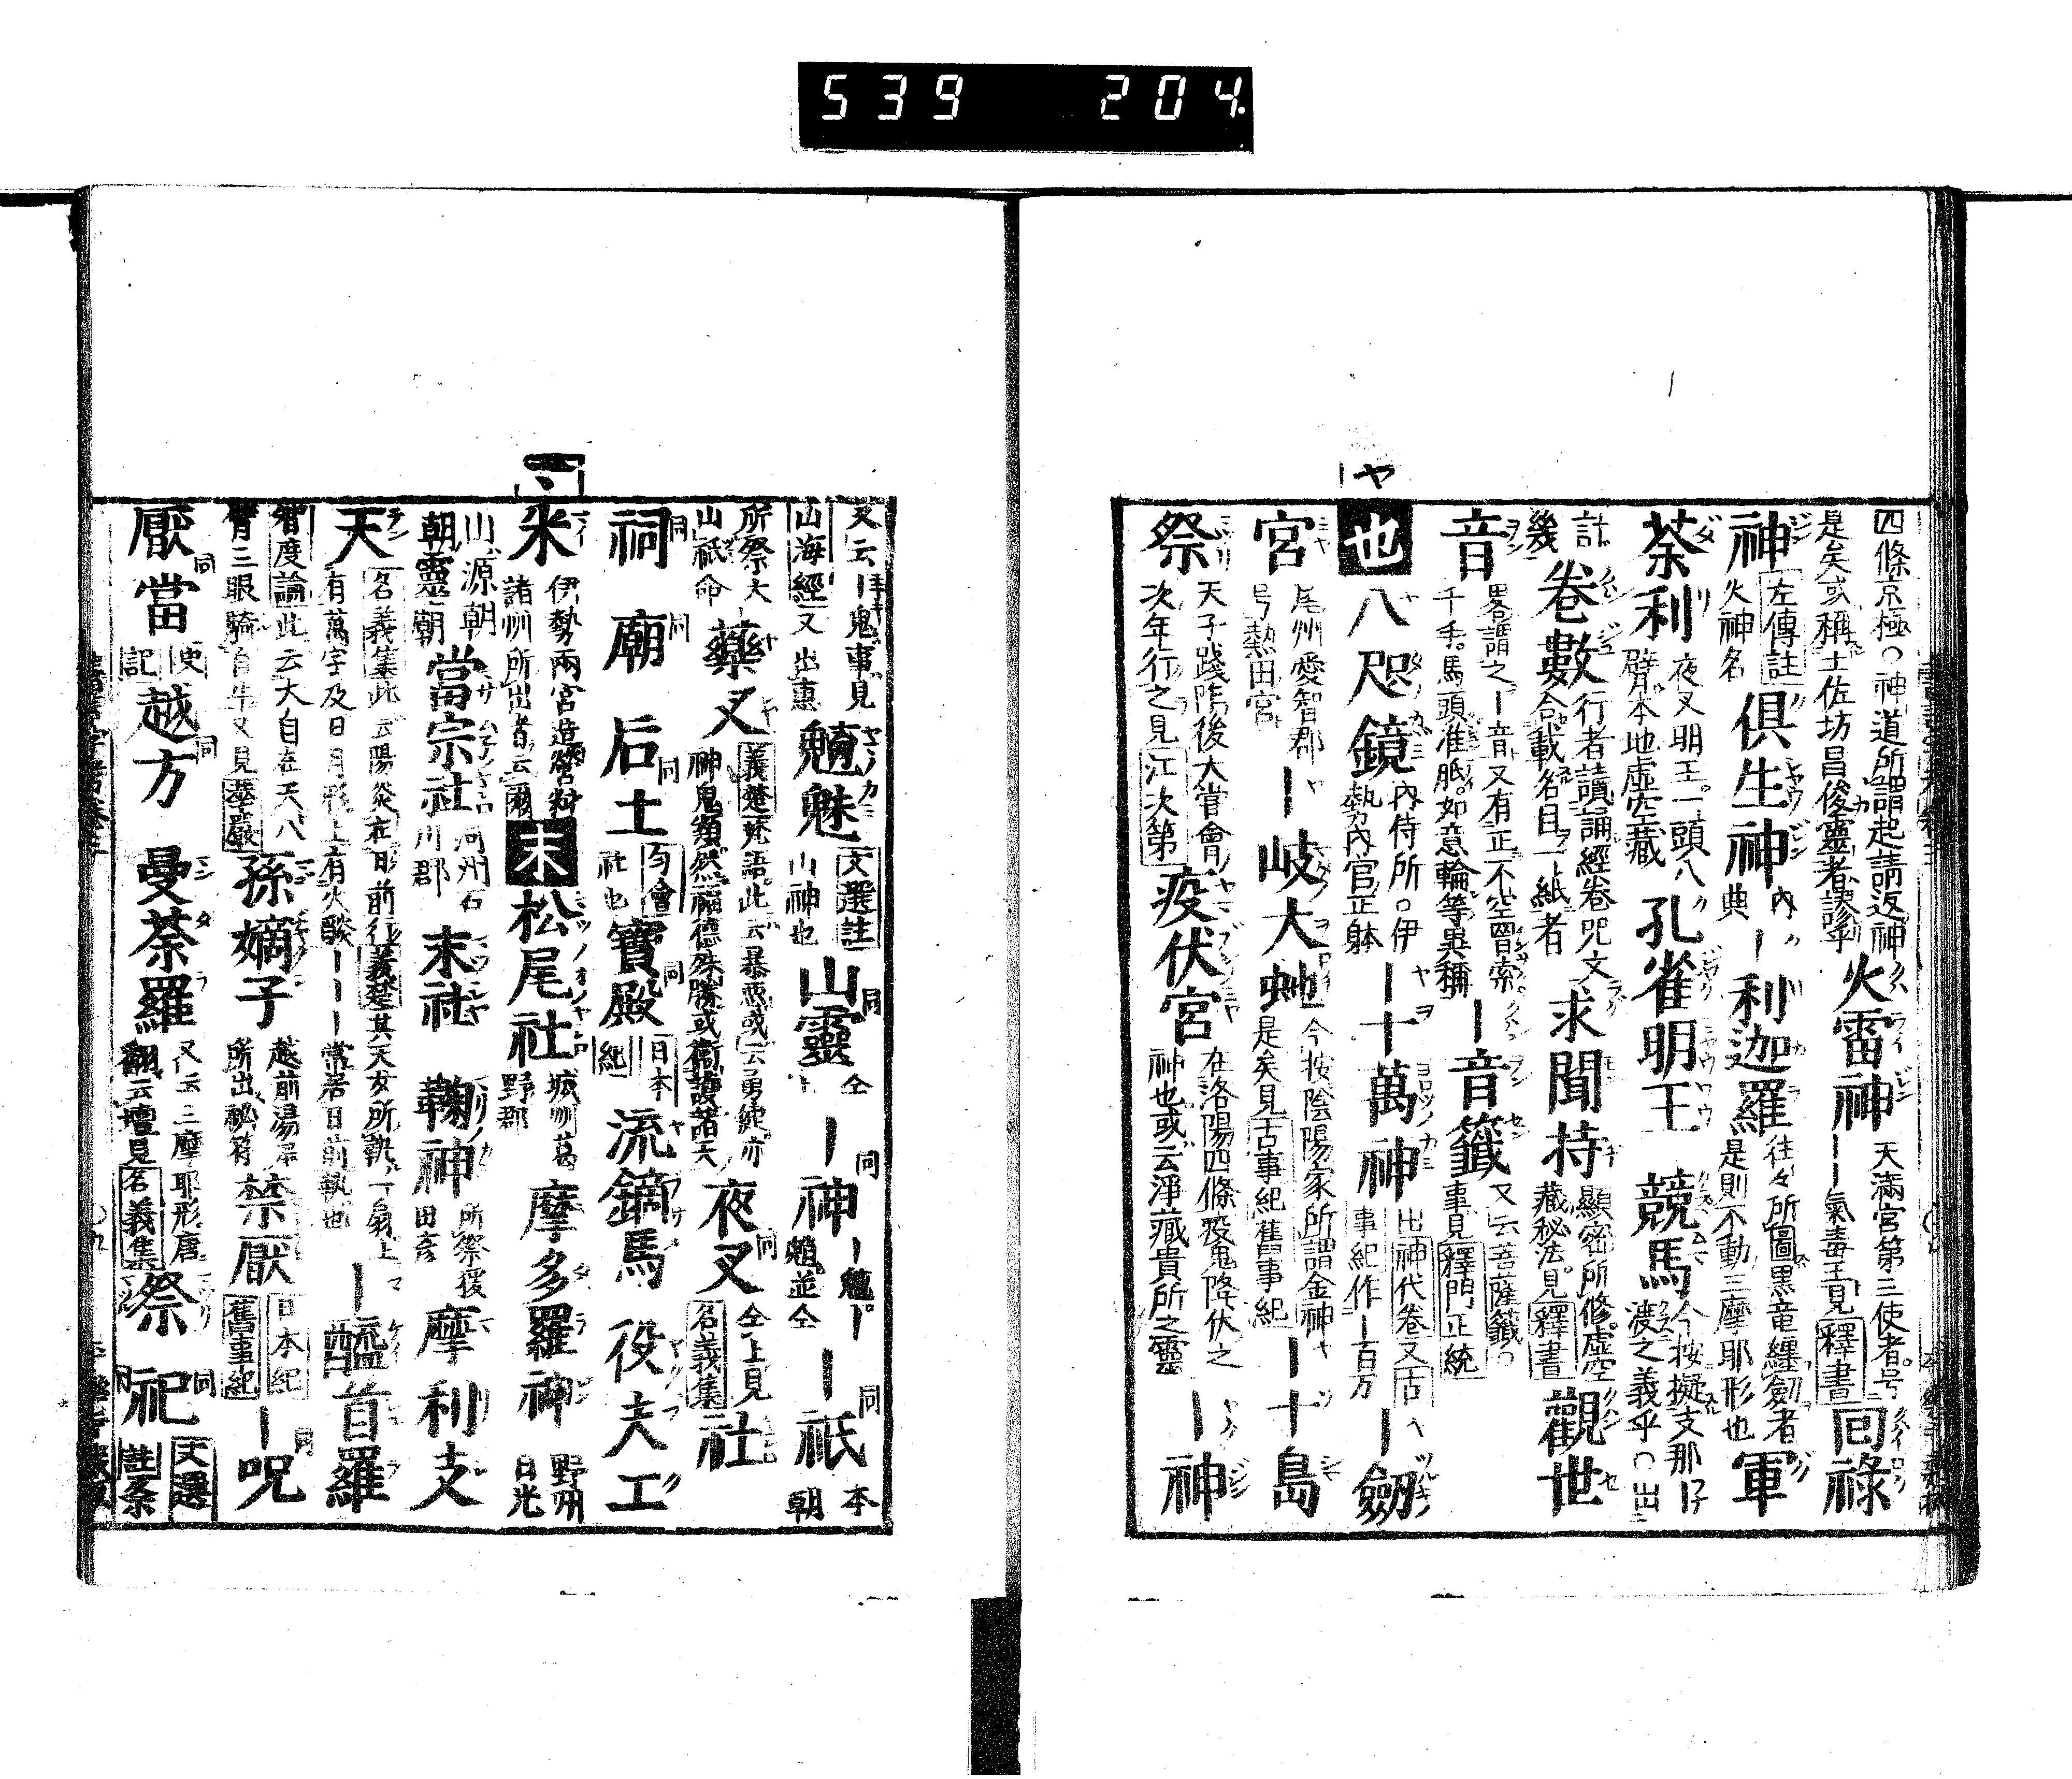 539 204
四條京極○神道所謂起請返神
是矣或稱土佐坊昌俊靈者謬乎
火雷神
天滿宮第三使者号
――氣毒王見釋書
回祿
神
左傳註
火神名
俱生神
內典
―利迦羅
往々所圖黒竜纏劒者
是則不動三摩耶形也
軍
荼利
夜叉明王一頭八
臂本地虛空藏
孔雀明王
競馬
今按擬支那
渡之義乎○出
計
幾
卷數
行者讀誦經卷咒文
合載名目一紙者
求聞持
顯密所修虛空
藏秘法見釋書
觀世
音
畧謂之―音又有正不空羂索
千手馬頭准胝如意輪等異稱
―音籤
又云菩薩籤○
事見釋門正統
ヤ
也
八咫鏡
內侍所○伊
勢內宮正躰
―十萬神
出神代卷又古
事紀作―百万
―劒
宮
尾州愛智郡
号熱田宮
―岐大虵
今按陰陽家所謂金神
是矣見古事紀舊事紀
―十島
祭
天子踐祚後大甞會
次年行之見江次第
疫伏宮
在洛陽四條疫鬼降伏之
神也或云淨藏貴所之靈
―神
又云―鬼事見
山海經又出惠
魑魅
文選註
山神也
山靈
仝
―神
―魑―
魈並仝
―祇
本
朝
所祭大
山祇命
藥叉
義楚梵語此云暴惡或云勇健亦
神鬼類然福德殊勝或衞護諸天
夜叉
仝上見
名義集
社
祠
廟
后土
匀會
社也
寶殿
日本
紀
流鏑馬
役夫工
米
伊勢兩宮造營料
諸州所出者云爾
末
松尾社
城州葛
野郡
摩多羅神
野州
日光
山源朝
朝靈廟
當宗社
河州石
川郡
末社
鞠神
所祭猨
田彥
摩利支
天
名義集此云陽炎在日前行義楚其天女所執一扇上
有萬字及日月形上有火燄―――常居日前執也
―醯首羅
智度論此云大自在天八
臂三眼騎白牛又見華嚴
孫嫡子
越前湯尾
所出秘符
禁厭
日本紀
舊事紀
―呪
厭當
史
記
越方
曼荼羅
又云三摩耶形唐
翻云壇見名義集
祭祀
文選
註